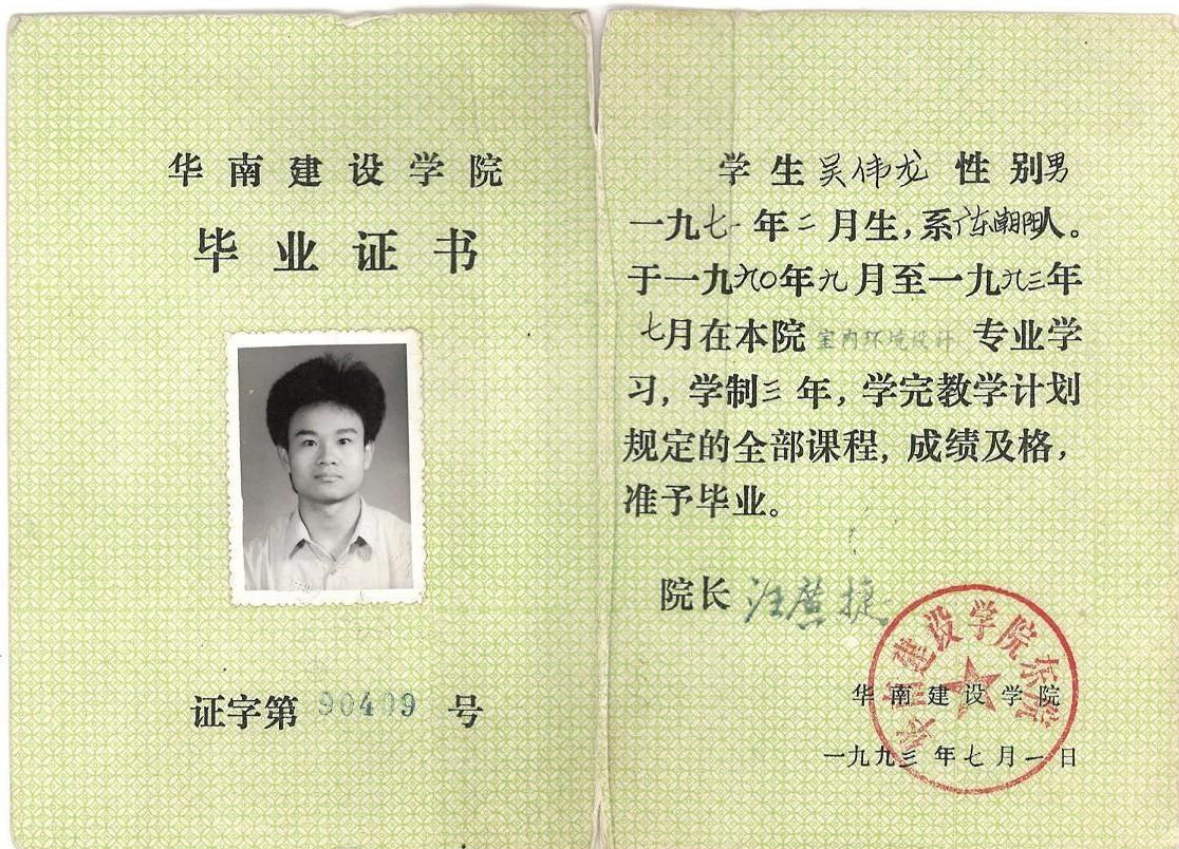 华南建设学院
毕业证书
证字第 90409 号
学生吴伟龙 性别男
一九七一年二月生，系广东潮阳人。
于一九九〇年九月至一九九三年
七月在本院 室内环境设计 专业学
习，学制三年，学完教学计划
规定的全部课程，成绩及格，
准予毕业。
院长 汪
捷
华南建设学院东院
华南建设学院
一九九三年七月一日